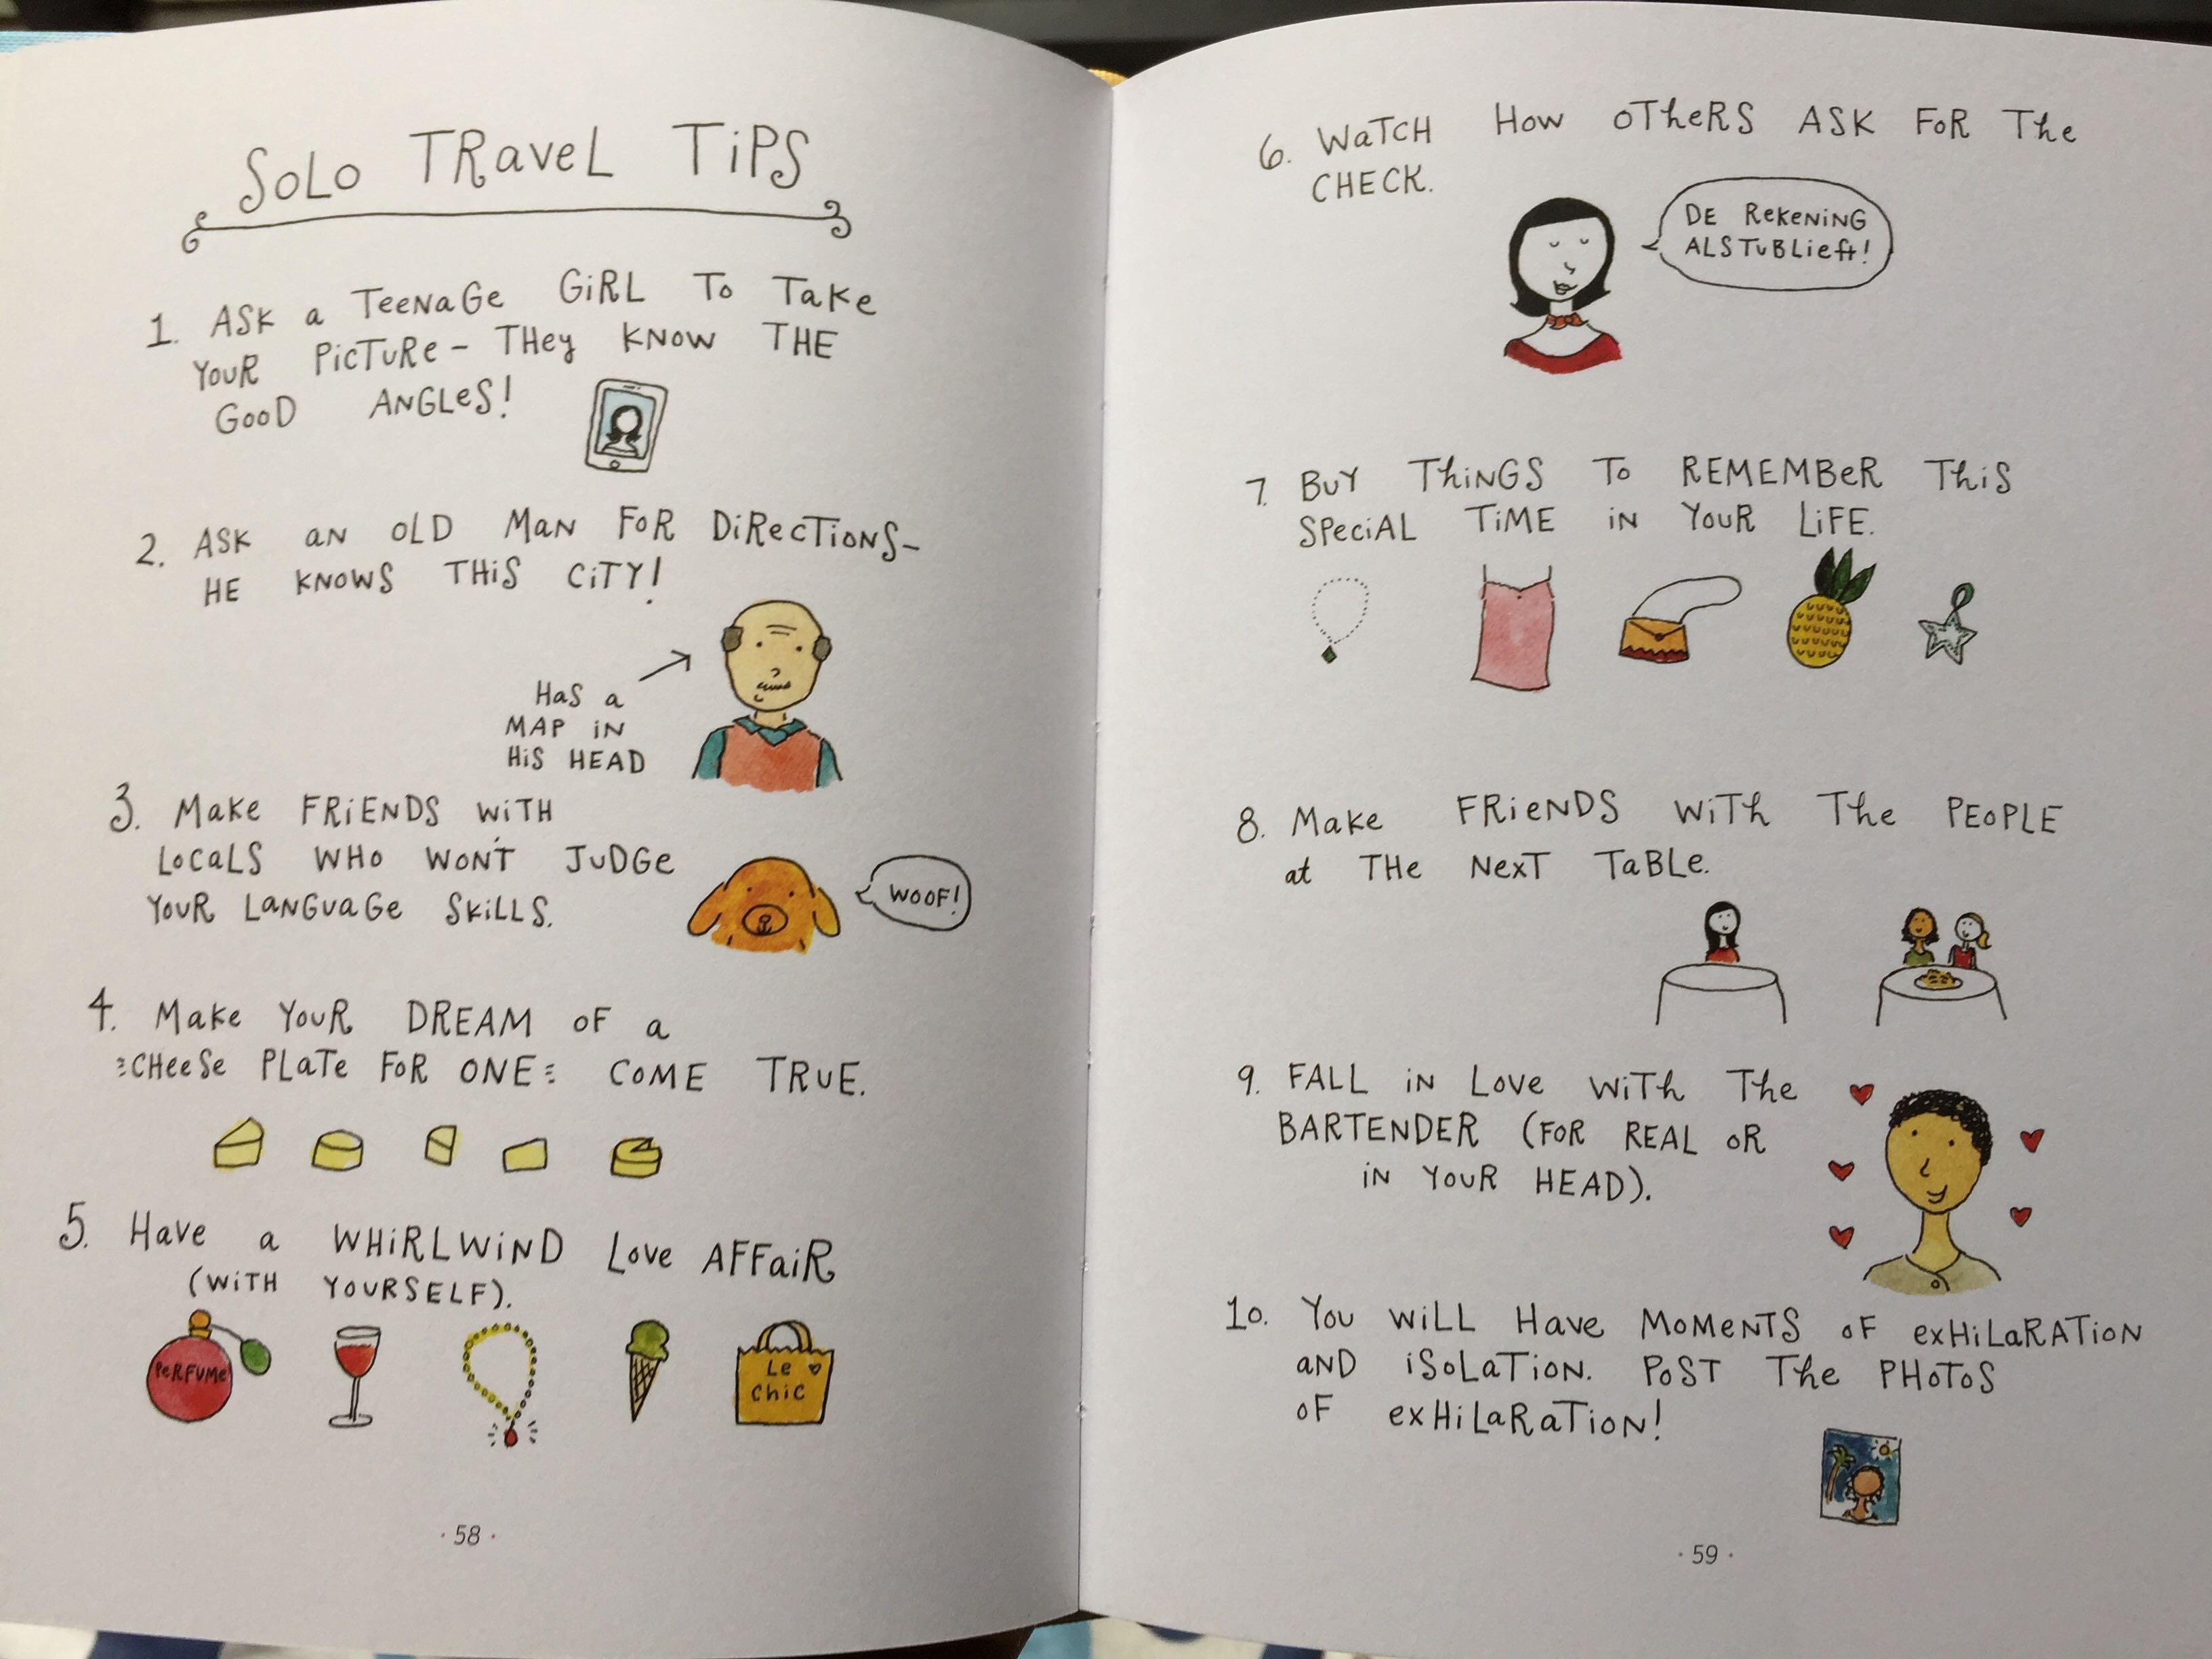 SOLO TRAVEL TIPS
1. ASK a TEENAGE GIRL TO TAKE
YOUR PICTURE - THEY KNOW THE
GOOD ANGLES!
2. ASK AN OLD MAN FOR DIRECTIONS-
HE KNOWS THIS CITY!
HAS a
MAP IN
HIS HEAD
3. MAKE FRIENDS WITH
LOCALS WHO WON'T JUDGE
YOUR LANGUAGE SKILLS.
WOOF!
4. MAKE YOUR DREAM OF a
CHEESE PLATE FOR ONE COME TRUE.
5. HAVE a WHIRLWIND LOVE AFFAIR
(WITH YOURSELF).
PERFUME
Le ♥
Chic
· 58 ·
6. WATCH HOW OTHERS ASK FOR THE
CHECK.
DE REKENING
ALSTUBLIEFT!
7. BUY THINGS TO REMEMBER THIS
SPECIAL TIME IN YOUR LIFE.
8. MAKE FRIENDS WITH THE PEOPLE
at THE NEXT TABLE.
9. FALL IN LOVE WITH THE
BARTENDER (FOR REAL OR
IN YOUR HEAD).
10. YOU WILL HAVE MOMENTS OF EXHILARATION
AND ISOLATION. POST THE PHOTOS
OF EXHILARATION!
· 59 ·